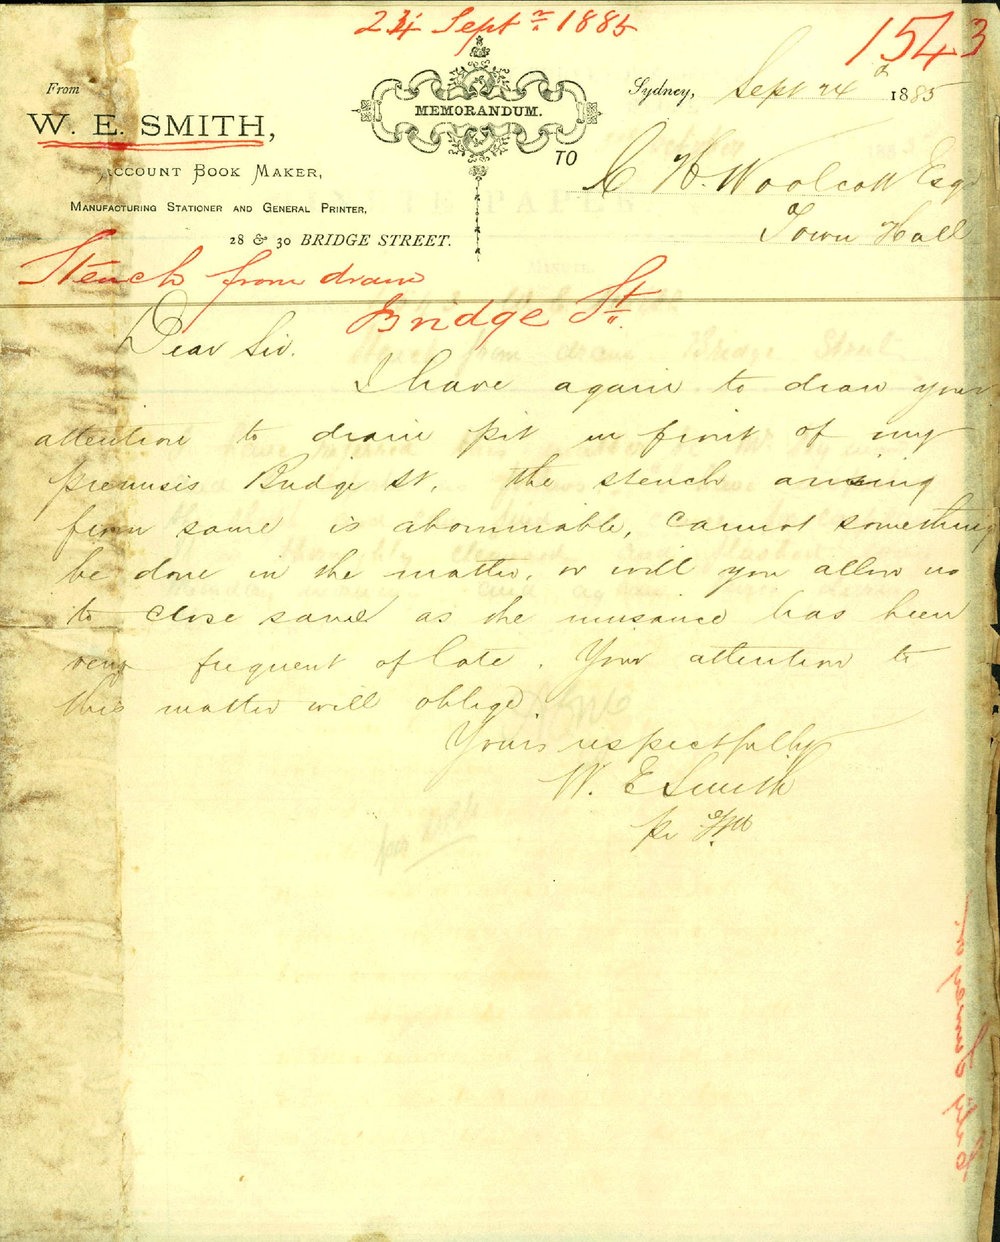 24 Septr 1885
1543
From
W. E. SMITH,
ACCOUNT BOOK MAKER,
MANUFACTURING STATIONER AND GENERAL PRINTER,
28 & 30 BRIDGE STREET.
MEMORANDUM.
Sydney, Sept 24 1885
TO
C H. Woolcott Esqr
Town Hall
Stench from drain
Bridge St.
Dear Sir.
I have again to draw your
attention to drain pit in front of my
premises Bridge St, the stench arising
from same is abominable, cannot something
be done in the matter, or will you allow us
to close same as the nuisance has been
very frequent of late. Your attention to
this matter will oblige
Yours respectfully
W. E Smith
pr
City Surveyor